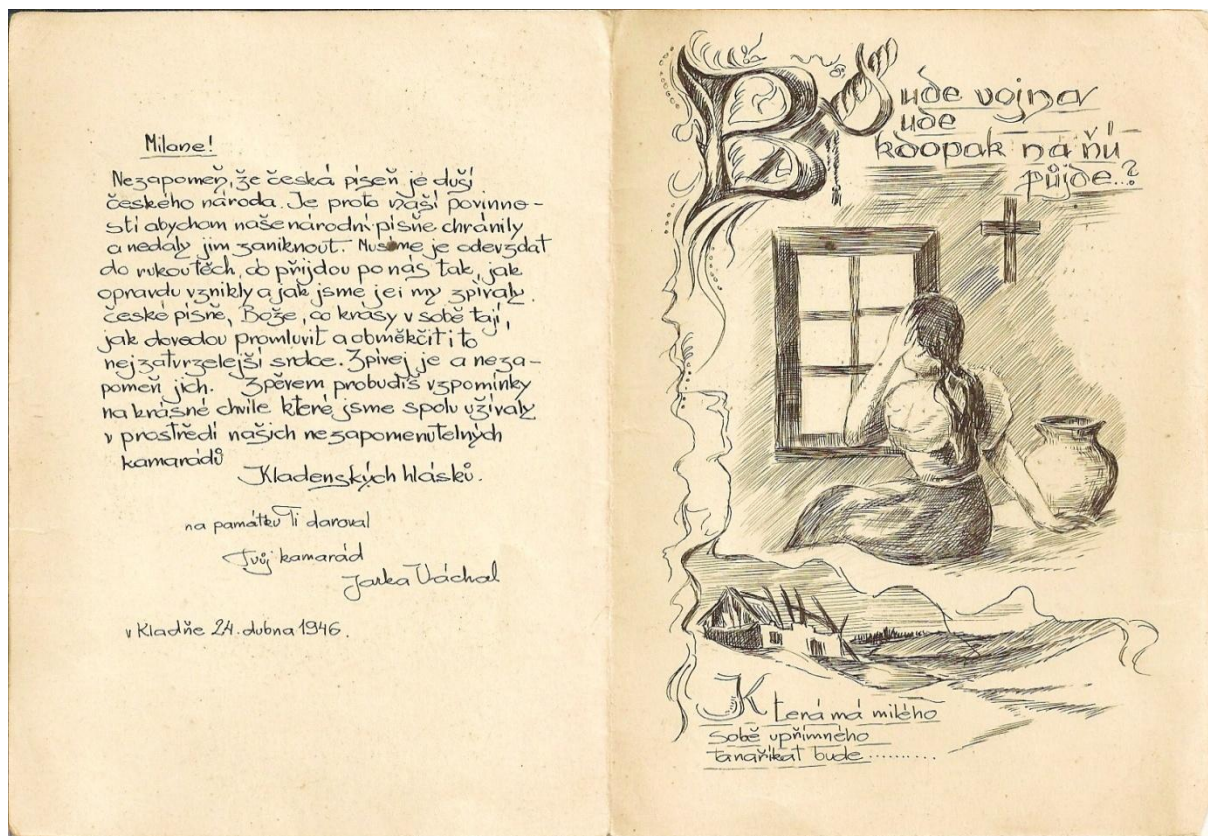 Milane!
Nezapomeň, že česká píseň je duší
českého národa. Je proto naší povinno-
stí abychom naše národní písně chránily
a nedaly jim zaniknout. Musíme je odevzdat
do rukou těch, co přijdou po nás tak, jak
opravdu vznikly a jak jsme jei my zpívaly.
České písně, Bože, co krásy v sobě tají,
jak dovedou promluvit a obměkčit i to
nejzatvrzelejší srdce. Zpívej je a neza-
pomeň jich. Zpěvem probudíš vzpomínky
na krásné chvíle které jsme spolu užívaly
v prostředí našich nezapomenutelných
kamarádů
Kladenských hlásků.
na památku Ti daroval
Tvůj kamarád
Jarka Váchal
v Kladňe 24. dubna 1946.
Bude vojna
bude
kdopak na ňú
půjde..?
Která má milého
sobě upřímného
ta naříkat bude..........